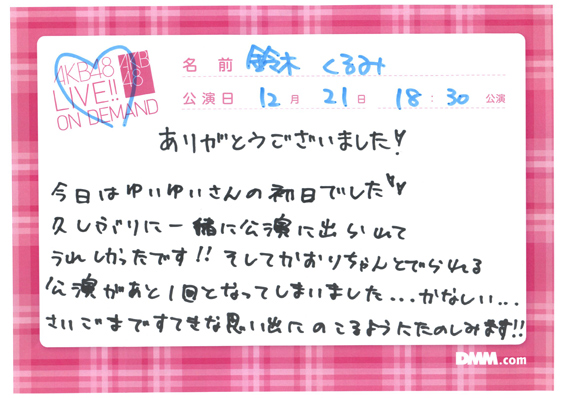 AKB48
LIVE!!
ON DEMAND
AKB
48
名前 鈴木 くるみ
公演日 12月 21日 18:30 公演
ありがとうございました!
今日はゆいゆいさんの初日でした
久しぶりに一緒に公演に出られて
うれしかったです!! そしてかおりちゃんとでられる
公演があと1回となってしまいました...かなしい...
さいごまですてきな思い出にのこるようにたのしみます!!
DMM.com